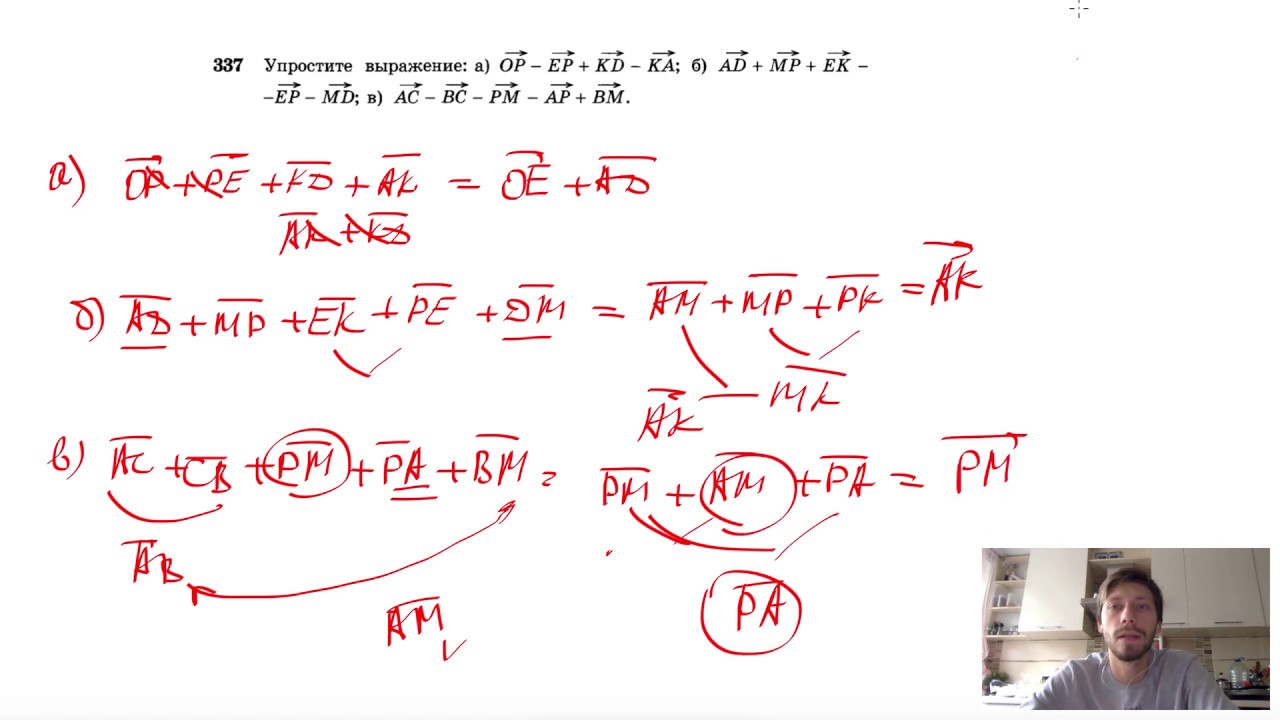 337 Упростите выражение: а) OP − EP + KD − KA; б) AD + MP + EK −
−EP − MD; в) AC − BC − PM − AP + BM.
а) OP + PE + KD + AK = OE + AD
AK + KD
б) AD + MP + EK + PE + DM = AM + MP + PK = AK
AK MK
в) AC + CB + PM + PA + BM = PM + AM + PA = PM
AB
AM
PA